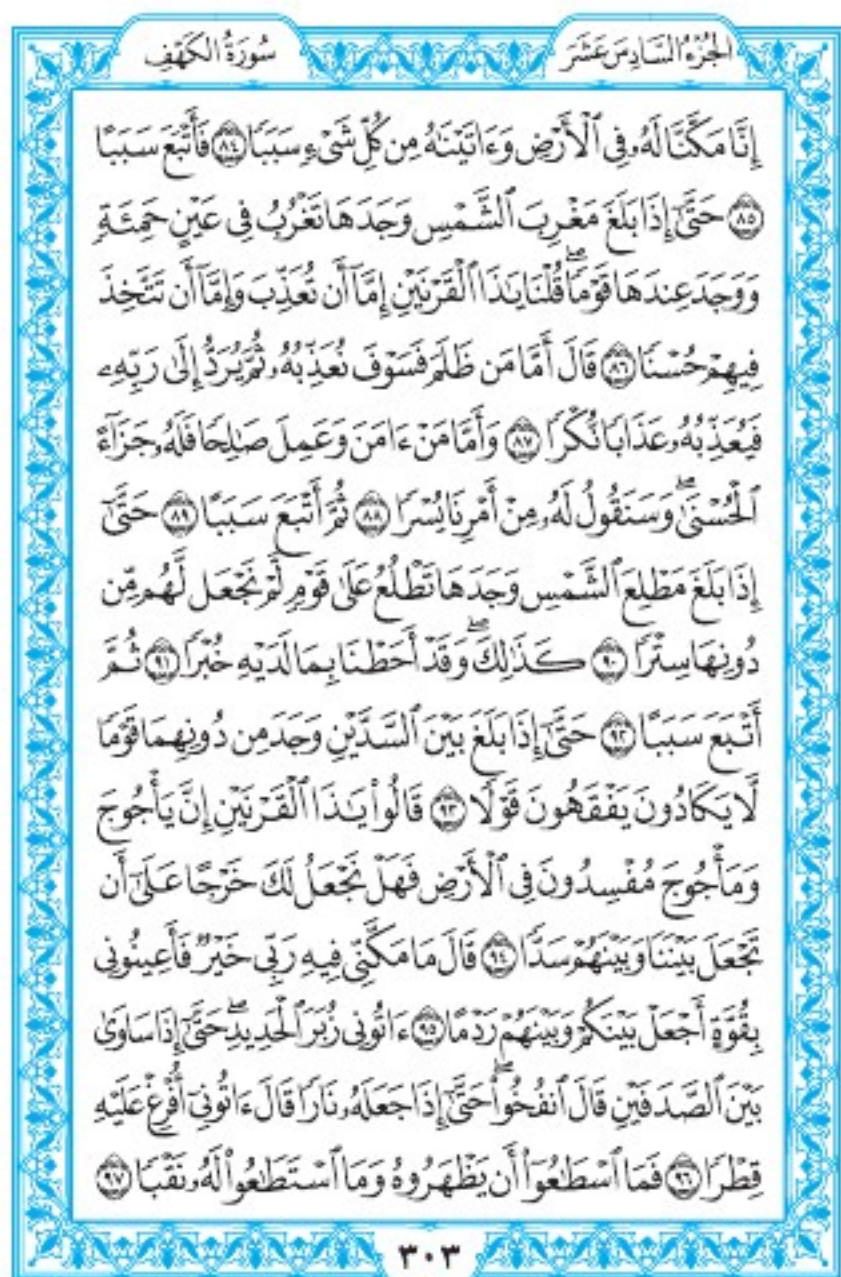 الجُزْءُ السَّادِسَ عَشَرَ
سُورَةُ الكَهْفِ
إِنَّا مَكَّنَّا لَهُۥ فِي ٱلْأَرْضِ وَءَاتَيْنَٰهُ مِن كُلِّ شَيْءٍ سَبَبًا ٨٤ فَأَتْبَعَ سَبَبًا
٨٥ حَتَّىٰٓ إِذَا بَلَغَ مَغْرِبَ ٱلشَّمْسِ وَجَدَهَا تَغْرُبُ فِي عَيْنٍ حَمِئَةٍ
وَوَجَدَ عِندَهَا قَوْمًاۖ قُلْنَا يَٰذَا ٱلْقَرْنَيْنِ إِمَّآ أَن تُعَذِّبَ وَإِمَّآ أَن تَتَّخِذَ
فِيهِمْ حُسْنًا ٨٦ قَالَ أَمَّا مَن ظَلَمَ فَسَوْفَ نُعَذِّبُهُۥ ثُمَّ يُرَدُّ إِلَىٰ رَبِّهِۦ
فَيُعَذِّبُهُۥ عَذَابًا نُّكْرًا ٨٧ وَأَمَّا مَنْ ءَامَنَ وَعَمِلَ صَٰلِحًا فَلَهُۥ جَزَآءً
ٱلْحُسْنَىٰۖ وَسَنَقُولُ لَهُۥ مِنْ أَمْرِنَا يُسْرًا ٨٨ ثُمَّ أَتْبَعَ سَبَبًا ٨٩ حَتَّىٰٓ
إِذَا بَلَغَ مَطْلِعَ ٱلشَّمْسِ وَجَدَهَا تَطْلُعُ عَلَىٰ قَوْمٍ لَّمْ نَجْعَل لَّهُم مِّن
دُونِهَا سِتْرًا ٩٠ كَذَٰلِكَۖ وَقَدْ أَحَطْنَا بِمَا لَدَيْهِ خُبْرًا ٩١ ثُمَّ
أَتْبَعَ سَبَبًا ٩٢ حَتَّىٰٓ إِذَا بَلَغَ بَيْنَ ٱلسَّدَّيْنِ وَجَدَ مِن دُونِهِمَا قَوْمًا
لَّا يَكَادُونَ يَفْقَهُونَ قَوْلًا ٩٣ قَالُوا۟ يَٰذَا ٱلْقَرْنَيْنِ إِنَّ يَأْجُوجَ
وَمَأْجُوجَ مُفْسِدُونَ فِي ٱلْأَرْضِ فَهَلْ نَجْعَلُ لَكَ خَرْجًا عَلَىٰٓ أَن
تَجْعَلَ بَيْنَنَا وَبَيْنَهُمْ سَدًّا ٩٤ قَالَ مَا مَكَّنِّي فِيهِ رَبِّي خَيْرٌ فَأَعِينُونِي
بِقُوَّةٍ أَجْعَلْ بَيْنَكُمْ وَبَيْنَهُمْ رَدْمًا ٩٥ ءَاتُونِي زُبَرَ ٱلْحَدِيدِۖ حَتَّىٰٓ إِذَا سَاوَىٰ
بَيْنَ ٱلصَّدَفَيْنِ قَالَ ٱنفُخُوا۟ۖ حَتَّىٰٓ إِذَا جَعَلَهُۥ نَارًا قَالَ ءَاتُونِيٓ أُفْرِغْ عَلَيْهِ
قِطْرًا ٩٦ فَمَا ٱسْطَٰعُوٓا۟ أَن يَظْهَرُوهُ وَمَا ٱسْتَطَٰعُوا۟ لَهُۥ نَقْبًا ٩٧
٣٠٣